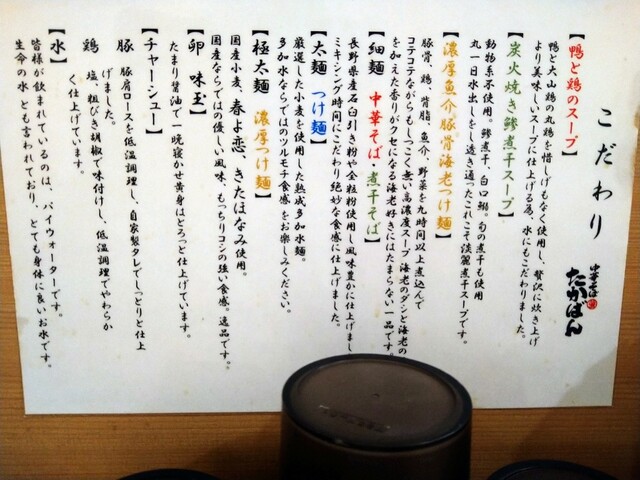 こだわり
中華そば
たかばん
【鴨と鶏のスープ】
鴨と大山鶏の丸鶏を惜しげもなく使用し、贅沢に炊き上げ
より美味しいスープに仕上げる為、水にもこだわりました。
【炭火焼き鯵煮干スープ】
動物系不使用。鯵煮干、白口鰯。旬の煮干も使用
丸一日水出しをし透き通ったこれこそ淡麗煮干スープです。
【濃厚魚介豚骨海老つけ麺】
豚骨、鶏、背脂、魚介、野菜を九時間以上煮込んで
コテコテながらもしつこく無い高濃度スープ 海老のダシと海老の
を加えた香りがクセになる海老好きにはたまらない一品です。
【細麺 中華そば・煮干そば】
長野県産石臼引き粉や全粒粉使用し風味豊かに仕上げまし
ミキシング時間にこだわり絶妙な食感に仕上げました。
【太麺 つけ麺】
厳選した小麦を使用した熟成多加水麺。
多加水ならではのツルモチ食感をお楽しみください。
【極太麺 濃厚つけ麺】
国産小麦、春よ恋、きたほなみ使用。
国産ならではの優しい風味、もっちりコシの強い食感。逸品です。
【卵 味玉】
たまり醤油で一晩寝かせ黄身はとろっと仕上げています。
【チャーシュー】
豚 豚肩ロースを低温調理し、自家製タレでしっとりと仕上
げました。
鶏 塩、粗びき胡椒で味付けし、低温調理でやわらか
く仕上げています。
【水】
皆様が飲まれているのは、パイウォーターです。
生命の水 とも言われており、とても身体に良いお水です。